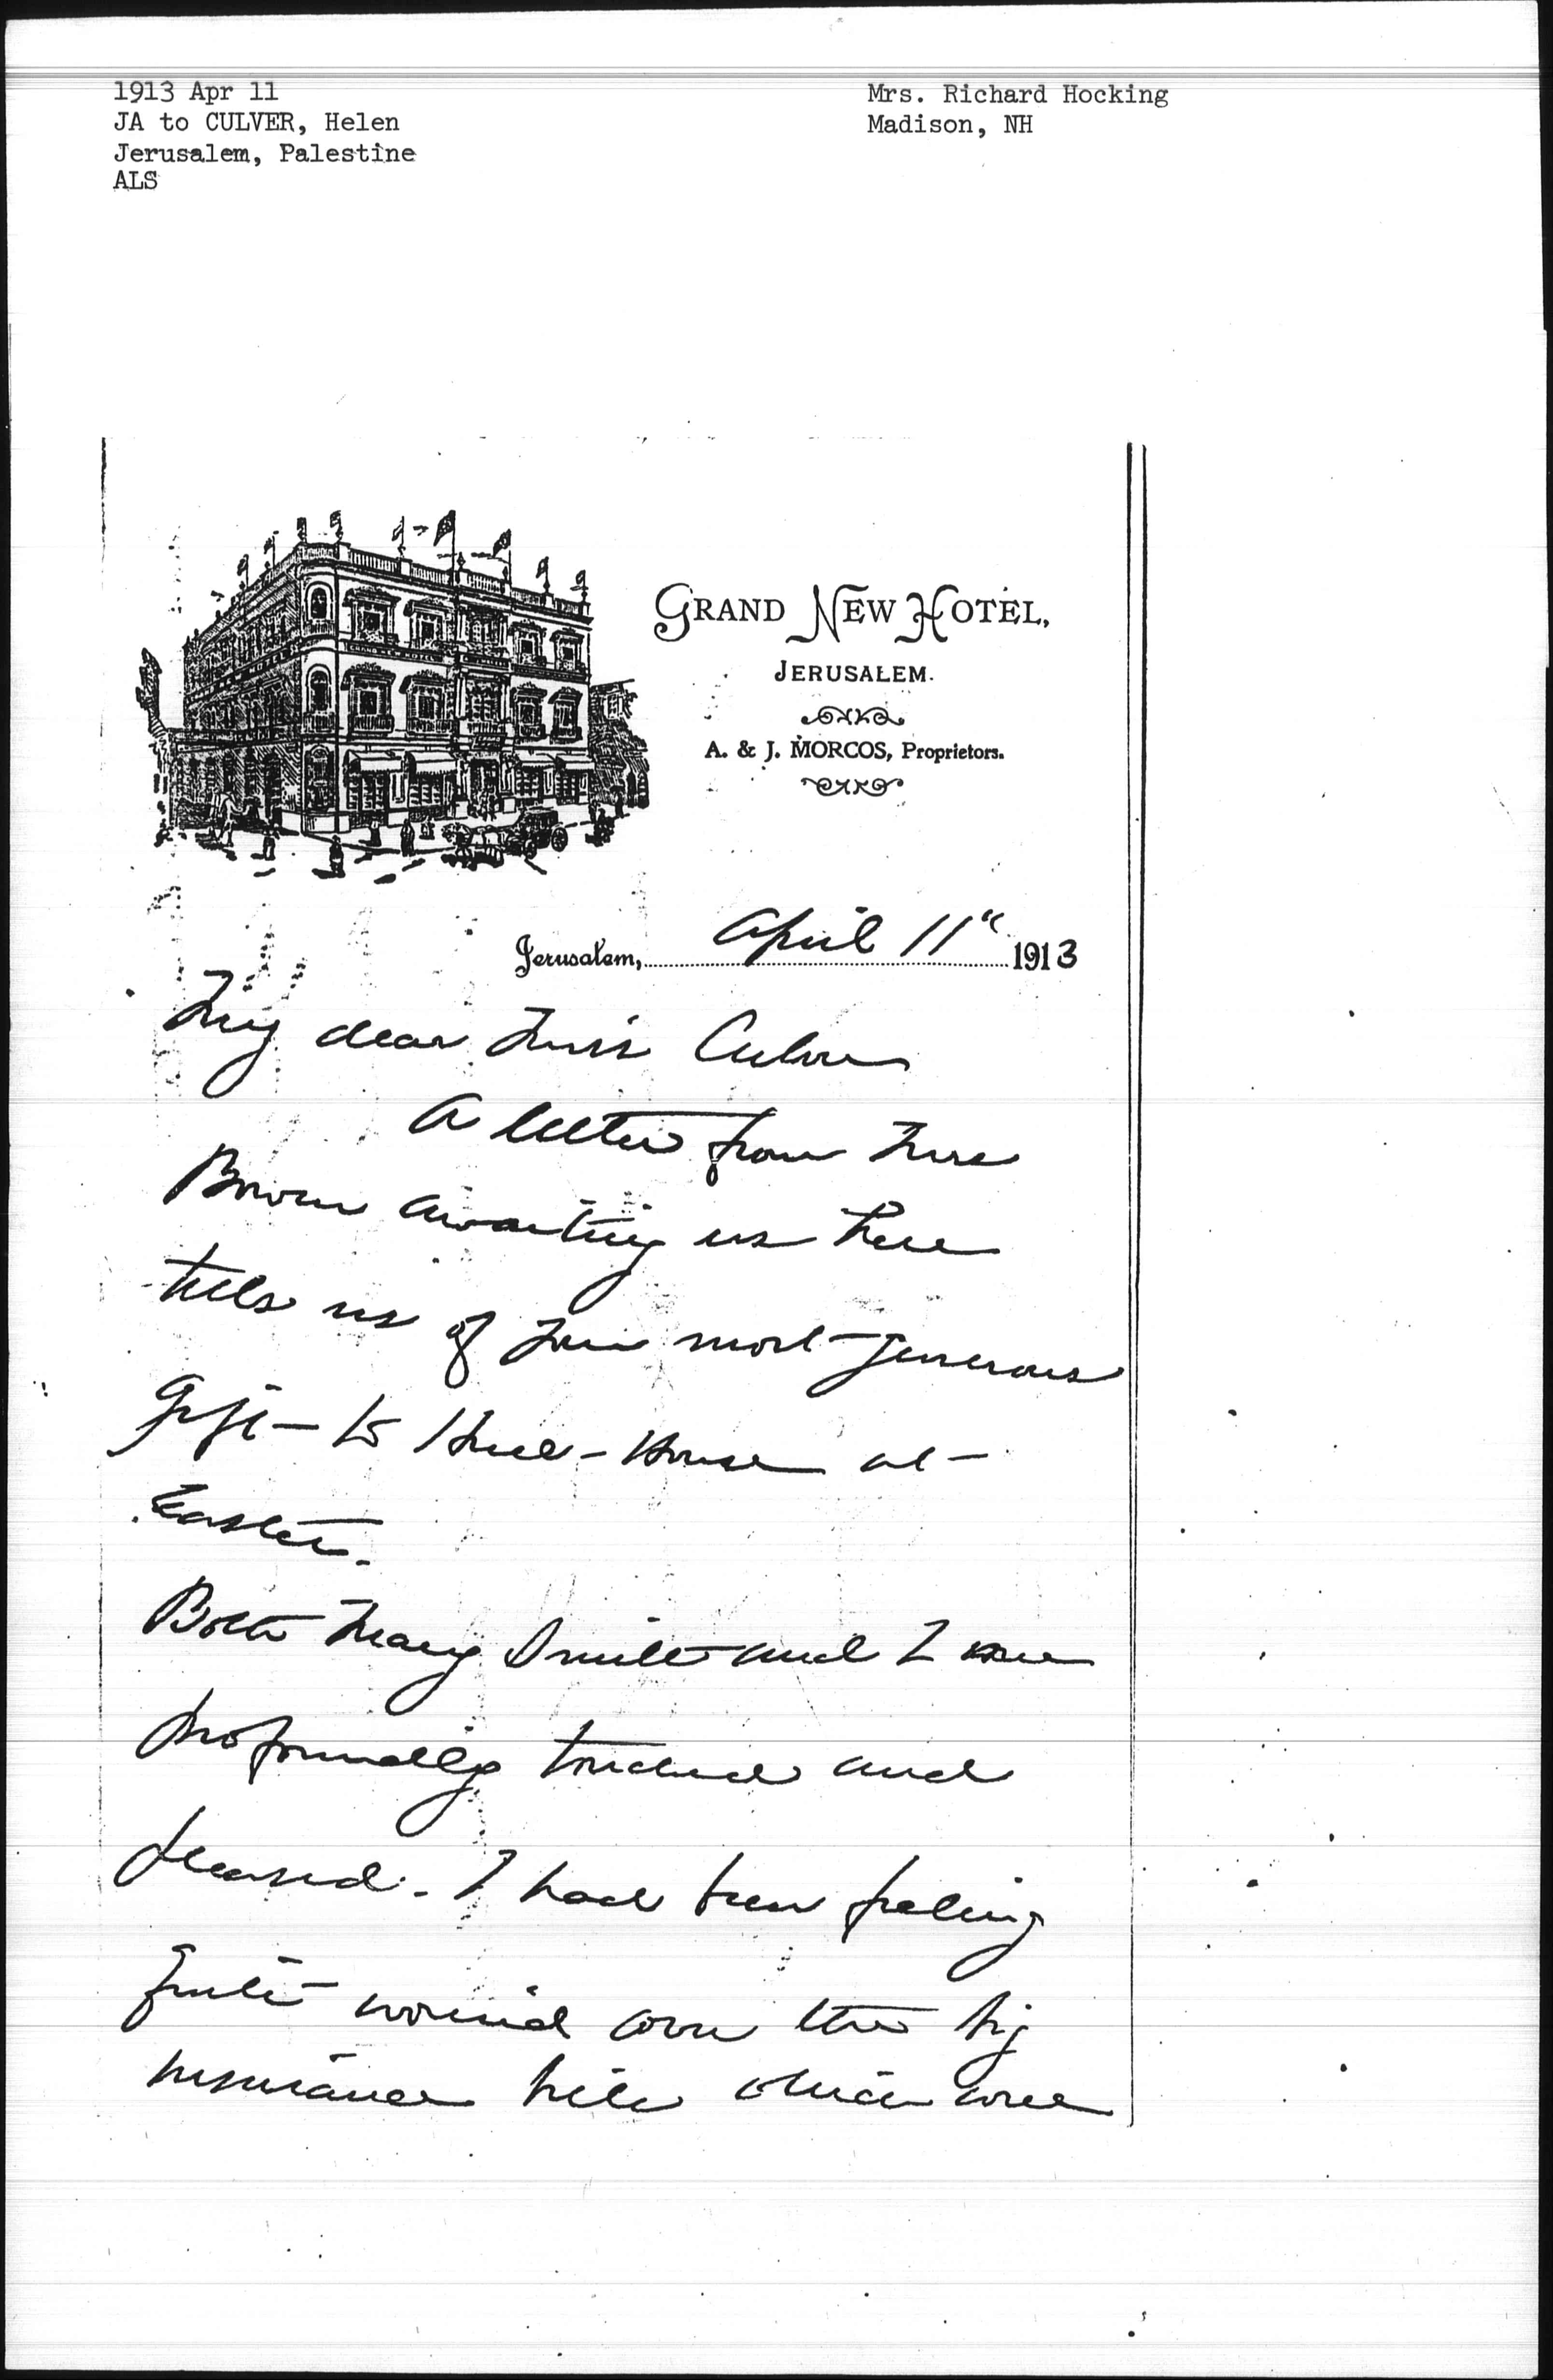 1913 Apr 11
JA to CULVER, Helen
Jerusalem, Palestine
ALS
Mrs. Richard Hocking
Madison, NH
GRAND NEW HOTEL,
JERUSALEM.
A. & J. MORCOS, Proprietors.
Jerusalem, April 11" 1913
My dear Miss Culver
A letter from Mrs
Bowen awaiting us here
tells us of your most generous
gift to Hull-House at
Easter.
Both Mary Smith and I are
profoundly touched and
pleased. I had been feeling
quite worried over the big
insurance bill which will